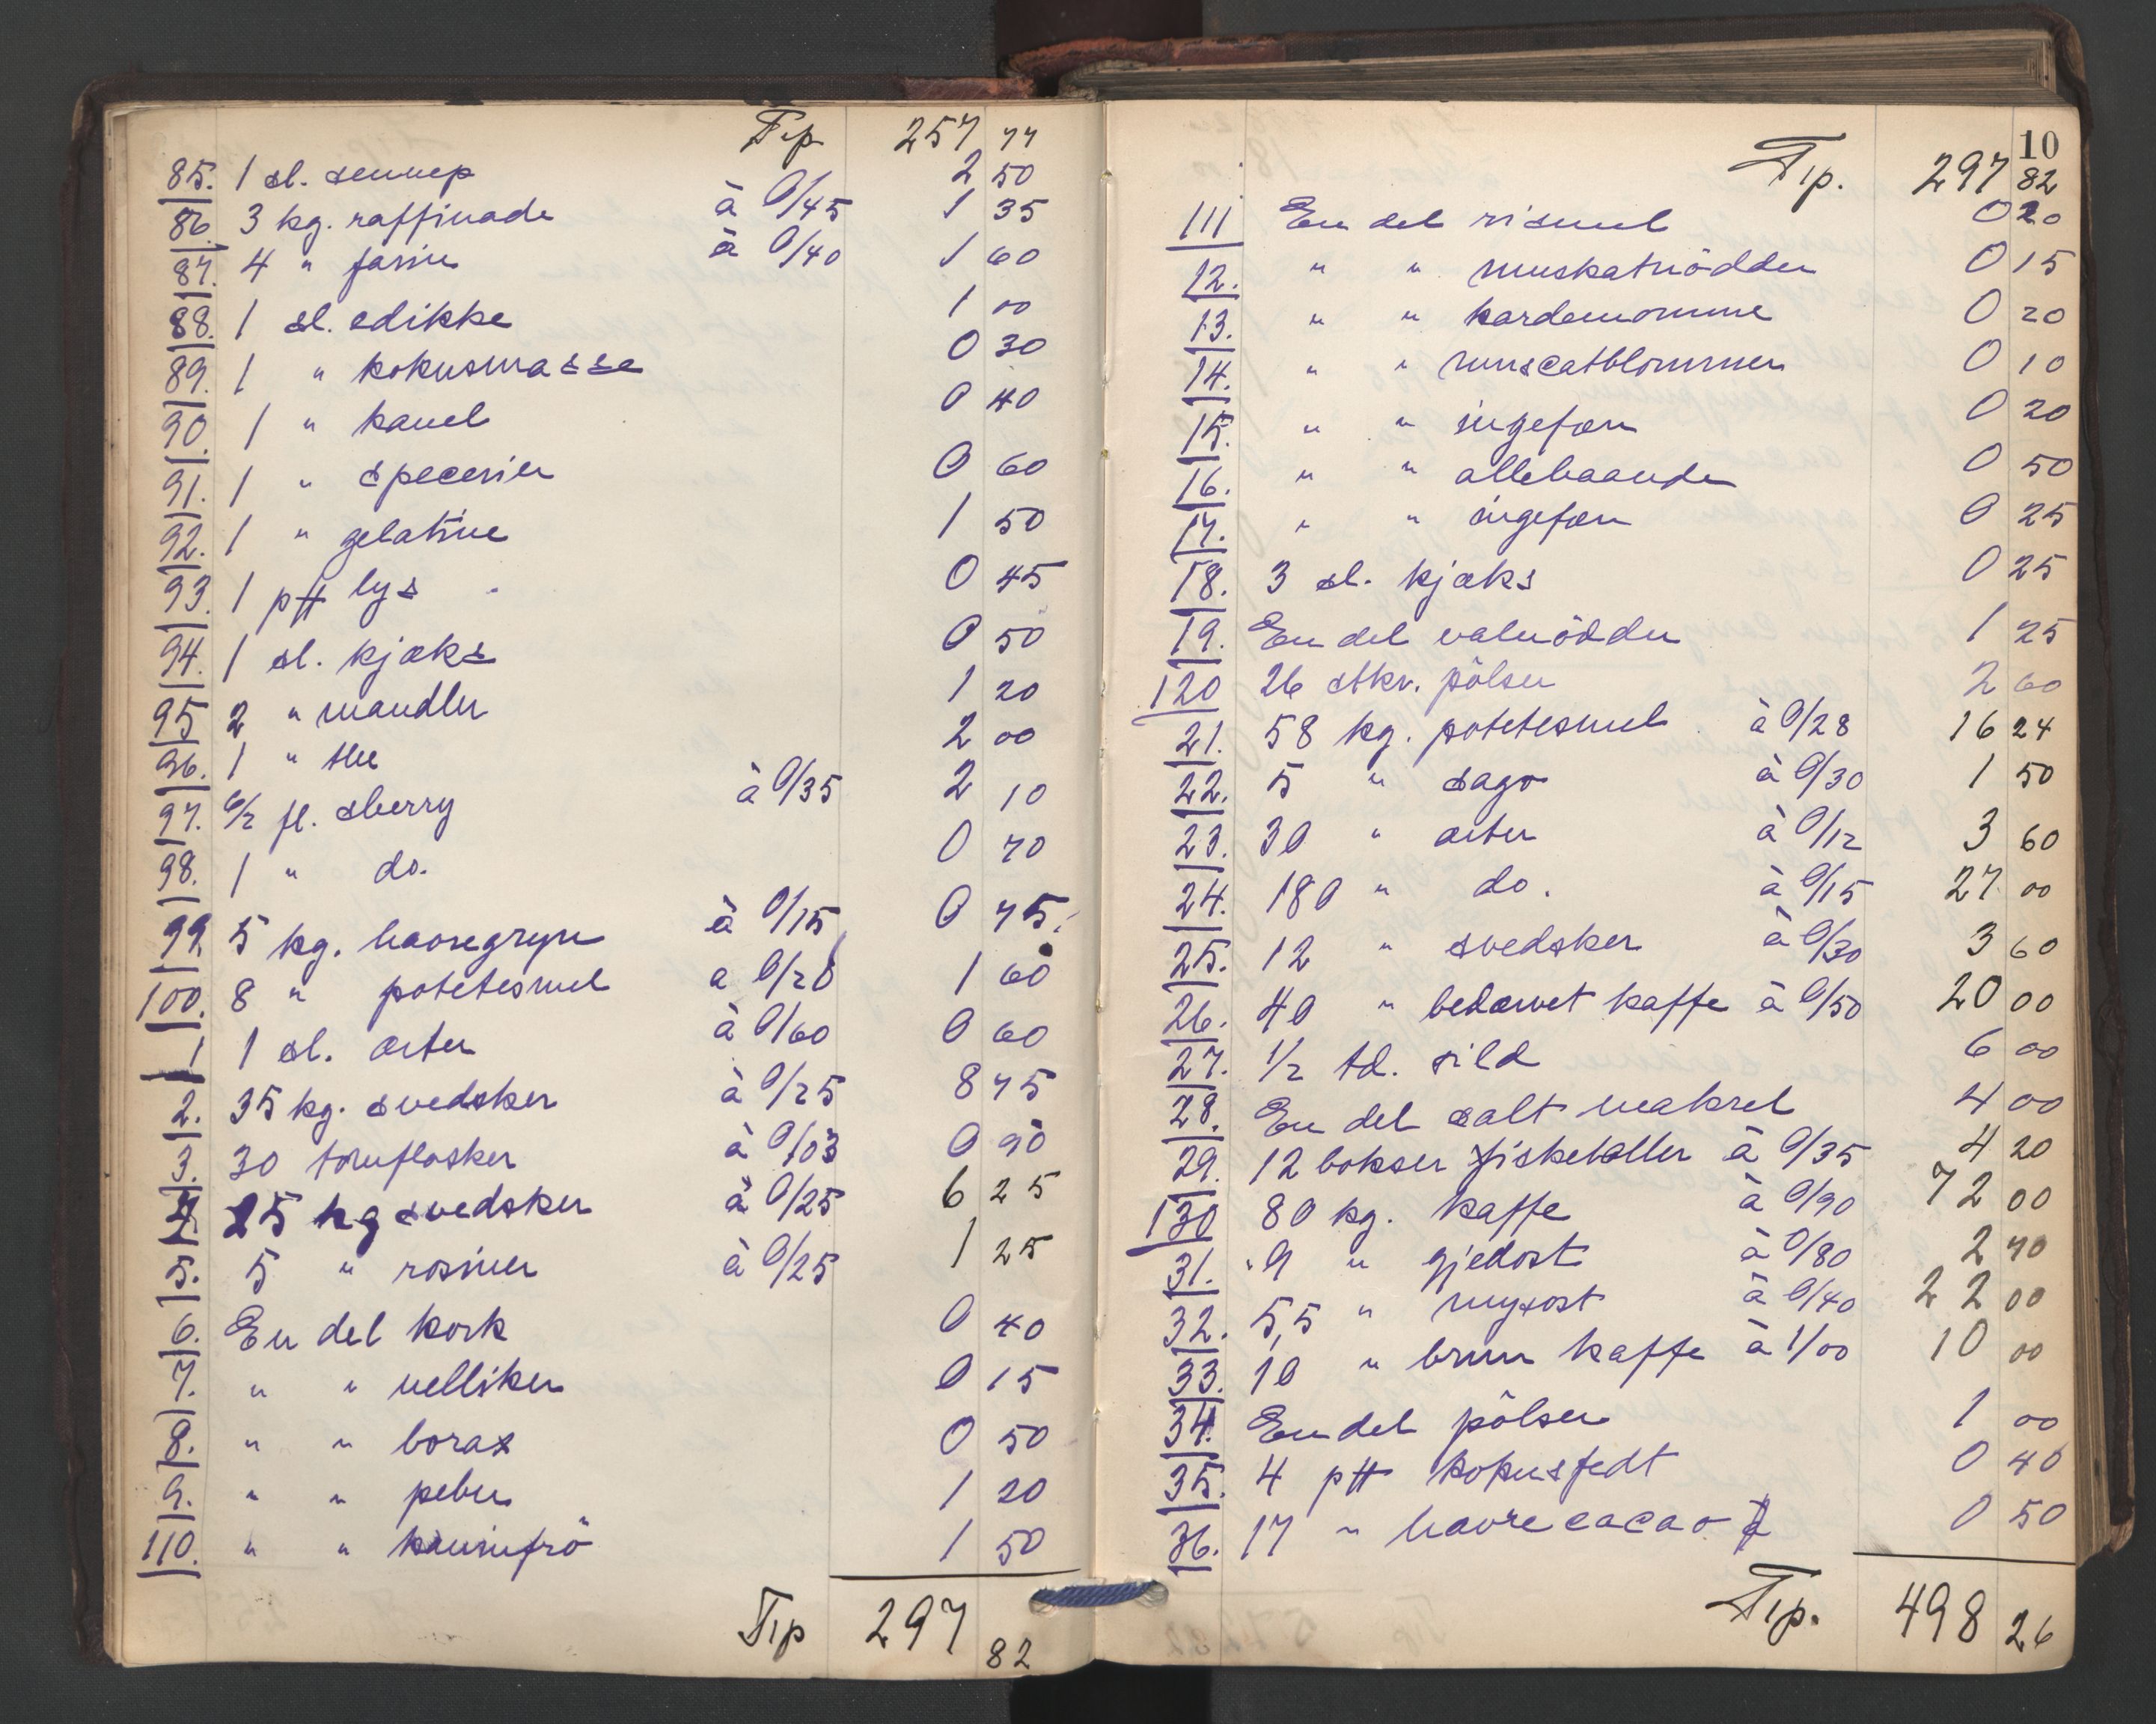 Trp. 257 77
85. 1 sl. sennep 2 50
86. 3 kg. raffinade à 0/45 1 35
87. 4 " farin à 0/40 1 60
88. 1 sl. edikke 1 00
89. 1 " kokusmasse 0 30
90. 1 " kanel 0 40
91. 1 " specerier 0 60
92. 1 " gelatine 1 50
93. 1 ptt lys 0 45
94. 1 sl. kjæks 0 50
95 2 " mandler 1 20
96. 1 " the 2 00
97. 6/2 fl. sherry à 0/35 2 10
98. 1 " do. 0 70
99 5 kg. havregryn à 0/15 0 75
100. 8 " potetesmel a 0/20 1 60
1 1 sl. ærter à 0/60 0 60
2. 35 kg. svedsker à 0/25 8 75
3. 30 tomflasker à 0/03 0 90
4 25 kg svedsker à 0/25 6 25
5. 5 " rosiner à 0/25 1 25
6. En del kork 0 40
7. " " nelliker 0 15
8. " " borax 0 50
9. " " peber 1 20
110. " " 1 50
Trp 297 82
10
Trp. 297 82
111 En del rismel 0 20
12. " " muskatnödder 0 15
13. " " kardemomme 0 20
14. " " muscatblommer 0 10
15. " " ingefær 0 20
16. " " allehaande 0 50
17. " " ingefær 0 25
18. 3 sl. kjæks 0 25
19. En del valnödder 1 25
120 26 stkr. pölser 2 60
21. 58 kg. potetesmel à 0/28 16 24
22. 5 " sago à 0/30 1 50
23. 30 " ærter à 0/12 3 60
24. 180 " do. à 0/15 27 00
25. 12 " svedsker à 0/30 3 60
26. 40 " bedærvet kaffe à 0/50 20 00
27. 1/2 td. sild 6 00
28. En del salt makrel 4 00
29. 12 bokser fiskeboller à 0/35 4 20
130 80 kg. kaffe à 0/90 72 00
31. 9 " gjedost à 0/80 2 70
32. 5,5 " mysost à 0/40 22 00
33. 10 " brun kaffe à 1/00 10 00
34. En del pölser 1 00
35. 4 ptt kokusfedt 0 40
36. 17 " havrecacao 0 50
Trp. 498 26